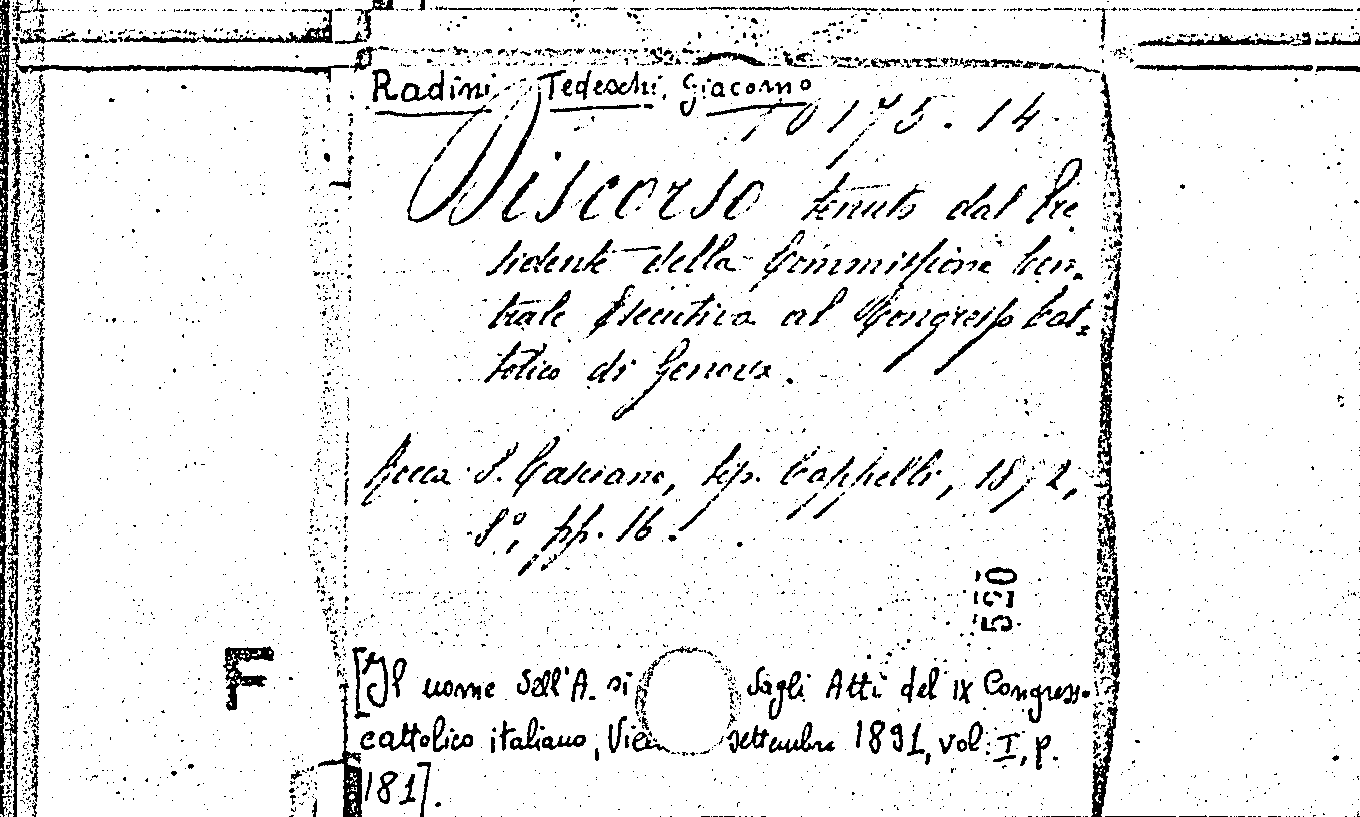 Radini Tedeschi, Giacomo
10175.14
Discorso tenuto dal Pre
sidente della Commissione Cen-
trale Esecutiva al Congresso Cat-
tolico di Genova.
Rocca S. Casciano, tip. Cappelli, 1892,
8°, pp. 16.
520
F
[Il nome dell'A. si dagli Atti del IX Congresso
cattolico italiano, settembre 1891, vol. I, p.
181].